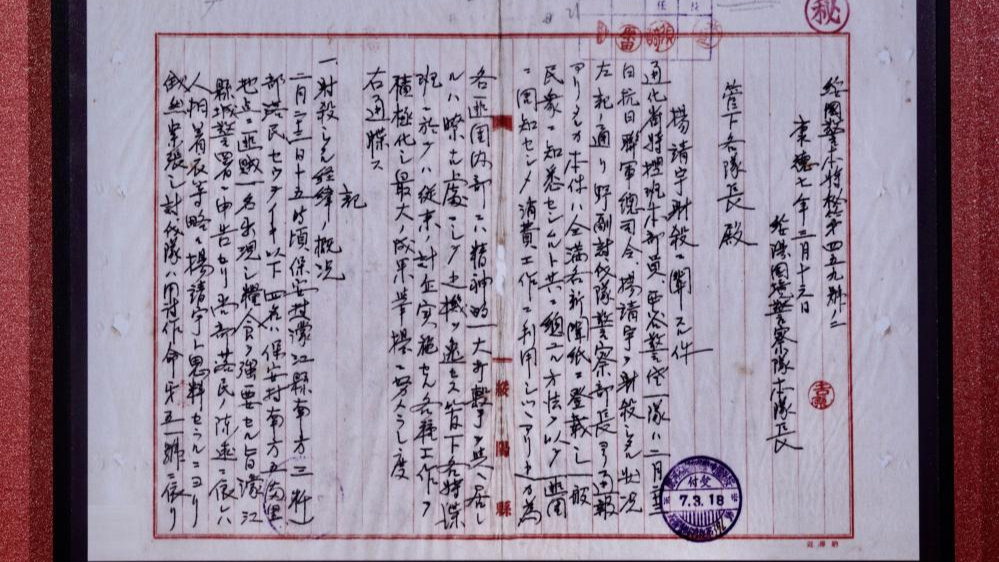 秘
綏國警本特秘第四五九號ノ二
康德七年三月十六日
綏陽國境警察隊本隊長
管下各隊長殿
楊靖宇射殺ニ關スル件
通化省特搜班本部員西谷警佐一隊ハ二月二十三
日抗日聯軍總司令楊靖宇ヲ射殺シタル狀況
左記ノ通リ野副討伐隊警察部長ヨリ通報
アリタルカ本件ハ全滿各新聞紙ニ登載シ一般
民衆ニ知悉センムルト共ニ總ユル方法ヲ以テ匪團
ニ周知センメ消費工作ニ利用シツツアリ之カ為
各匪團內部ニハ精神的ノ一大打擊ヲ與ヘ居
ルハ瞭カナル處ニシテ此ノ機ヲ逸セス管下各特搜
班ニ於テハ從來ノ計企實施セル各種工作ヲ
積極化シ最大ノ成果擧揚ニ努メラレ度
右通牒ス
記
一射殺シタル經緯ノ概況
二月二十三日十五時頃保安村濛江縣南方三粁
部落民
以下四名ハ保安村南方五百米
地点ニ匪賊一名出現シ糧食ヲ強要セル旨濛江
縣城警署ニ申告セリ
部落民ノ陳述ニ依レハ
人相着衣等略々楊靖宇ト思料セラルルニヨリ
俄然緊張シ討伐隊ハ
作命第五一號ニ依リ
受付
7.3.18
綏陽縣